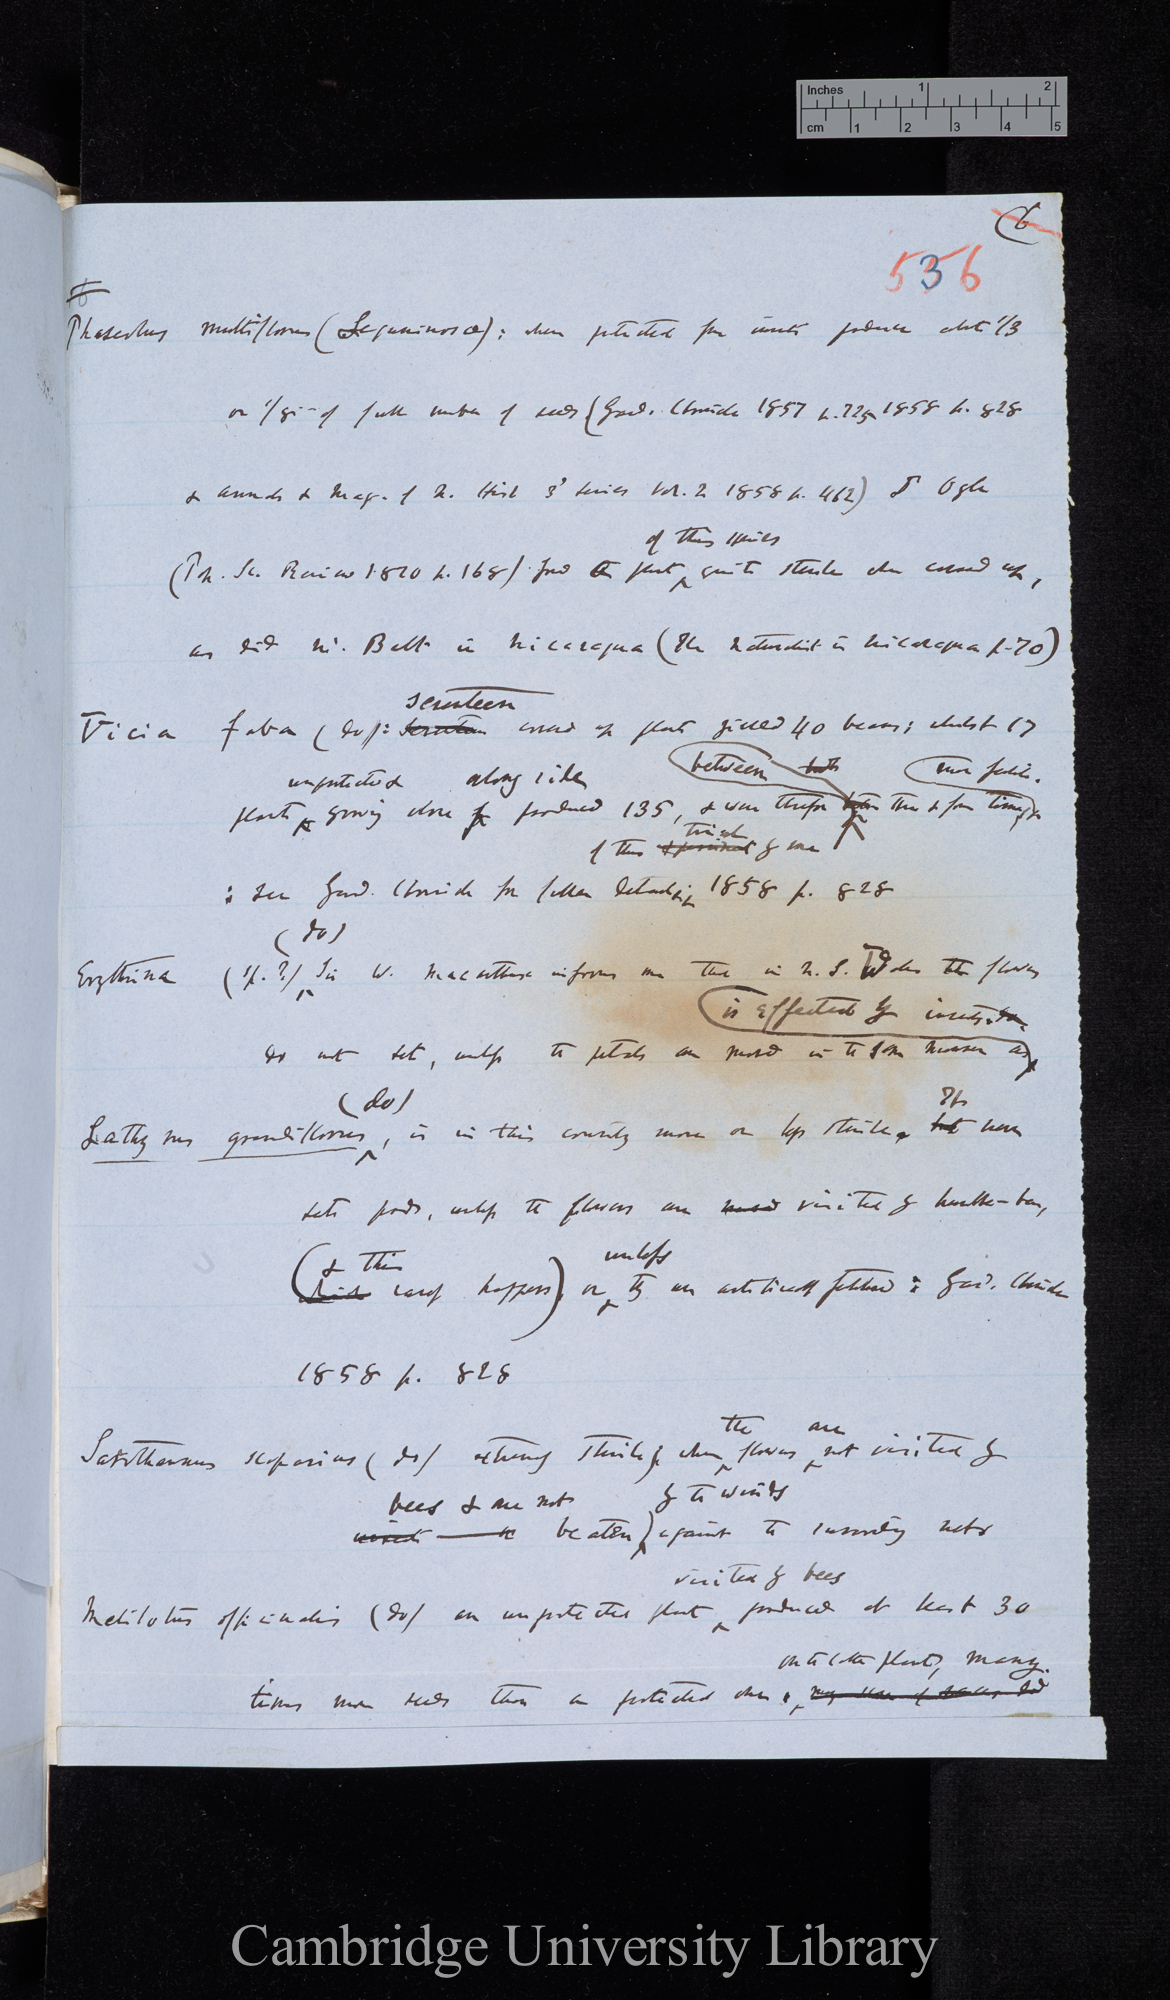 Inches 1 2
cm 1 2 3 4 5
(6
536
Phaseolus multiflorus (Leguminosæ): when protected from insects produces about 1/3
or 1/8th of full number of seeds (Gard. Chronicle 1857 p. 725, 1858 p. 828
& Annals & Mag. of N. Hist 3d series Vol. 2 1858 p. 462) Dr Ogle
of this species
(Pop. Sc. Review 1870 p. 168) found the plants quite sterile when covered up,
as did Mr. Belt in Nicaragua (The Naturalist in Nicaragua p. 70)
seventeen
Vicia faba (do): seventeen covered up plants yielded 40 beans; whilst 17
between both more fertile.
unprotected along side
plants growing close produced 135, & were therefore three & four times
of this trial by me
: see Gard. Chronicle for fuller details, 1858 p. 828
(do)
Erythrina (sp.?) Sir W. Macarthur informs me that in N. S. Wales the flowers
is effected by insects.
do not set, unless the petals are moved in the same manner as
(do)
Lathyrus grandiflorus, is in this country more or less sterile. but It never
sets pods, unless the flowers are visited by humble-bees,
& this unless
(which rarely happens) or they are artificially fertilised: Gard. Chronicle
1858 p. 828
the are
Sarothamnus scoparius (do) extremely sterile, when flowers not visited by
bees & are not by the wind
beaten against the surrounding nets
visited by bees
Melilotus officinalis (do) an unprotected plant produced at least 30
on the latter plants, many
times more seeds than a protected one.
Cambridge University Library